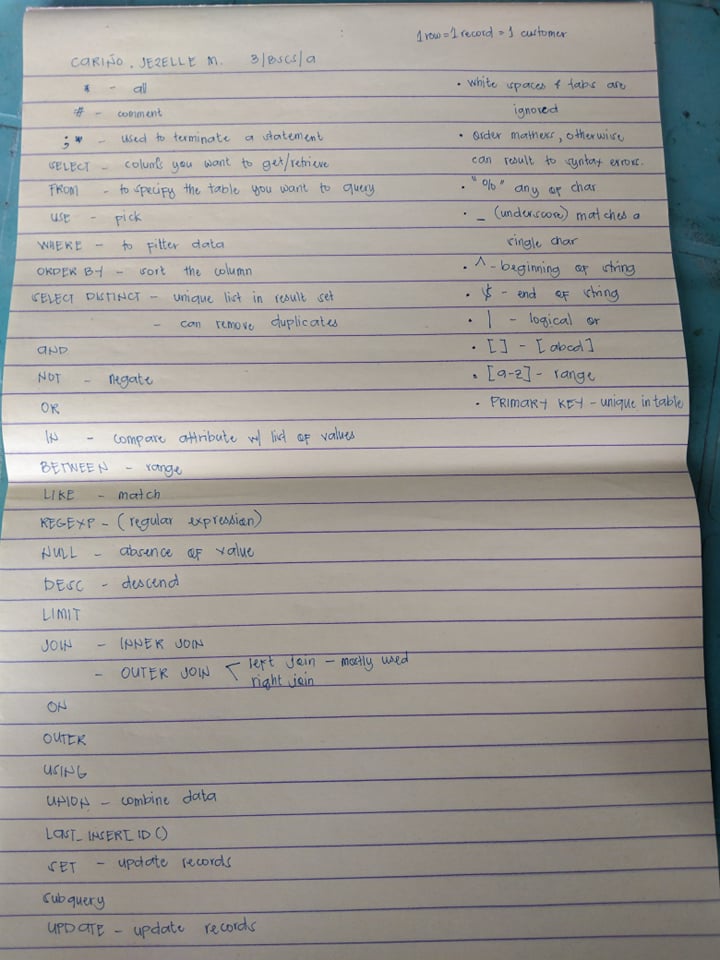 1 row = 1 record = 1 customer
CARIÑO, JEZELLE M. 3/BSCS/a
* - all
# - comment
;* - used to terminate a statement
SELECT - colums you want to get/retrieve
FROM - to specify the table you want to query
USE - pick
WHERE - to filter data
ORDER BY - sort the column
SELECT DISTINCT - unique list in result set
- can remove duplicates
AND
NOT - negate
OR
IN - compare attribute w/ list of values
BETWEEN - range
LIKE - match
REGEXP - (regular expression)
NULL - absence of value
DESC - descend
LIMIT
JOIN - INNER JOIN
- OUTER JOIN < left join - mostly used
right join
ON
OUTER
USING
UNION - combine data
LAST_INSERT_ID ()
SET - update records
subquery
UPDATE - update records
• white spaces & tabs are
ignored
• Order matters, otherwise
can result to syntax errors.
• "%" any of char
• _ (underscore) matches a
single char
• ^ - beginning of string
• $ - end of string
• | - logical or
• [ ] - [abcd]
• [a-z] - range
• PRIMARY KEY - unique in table